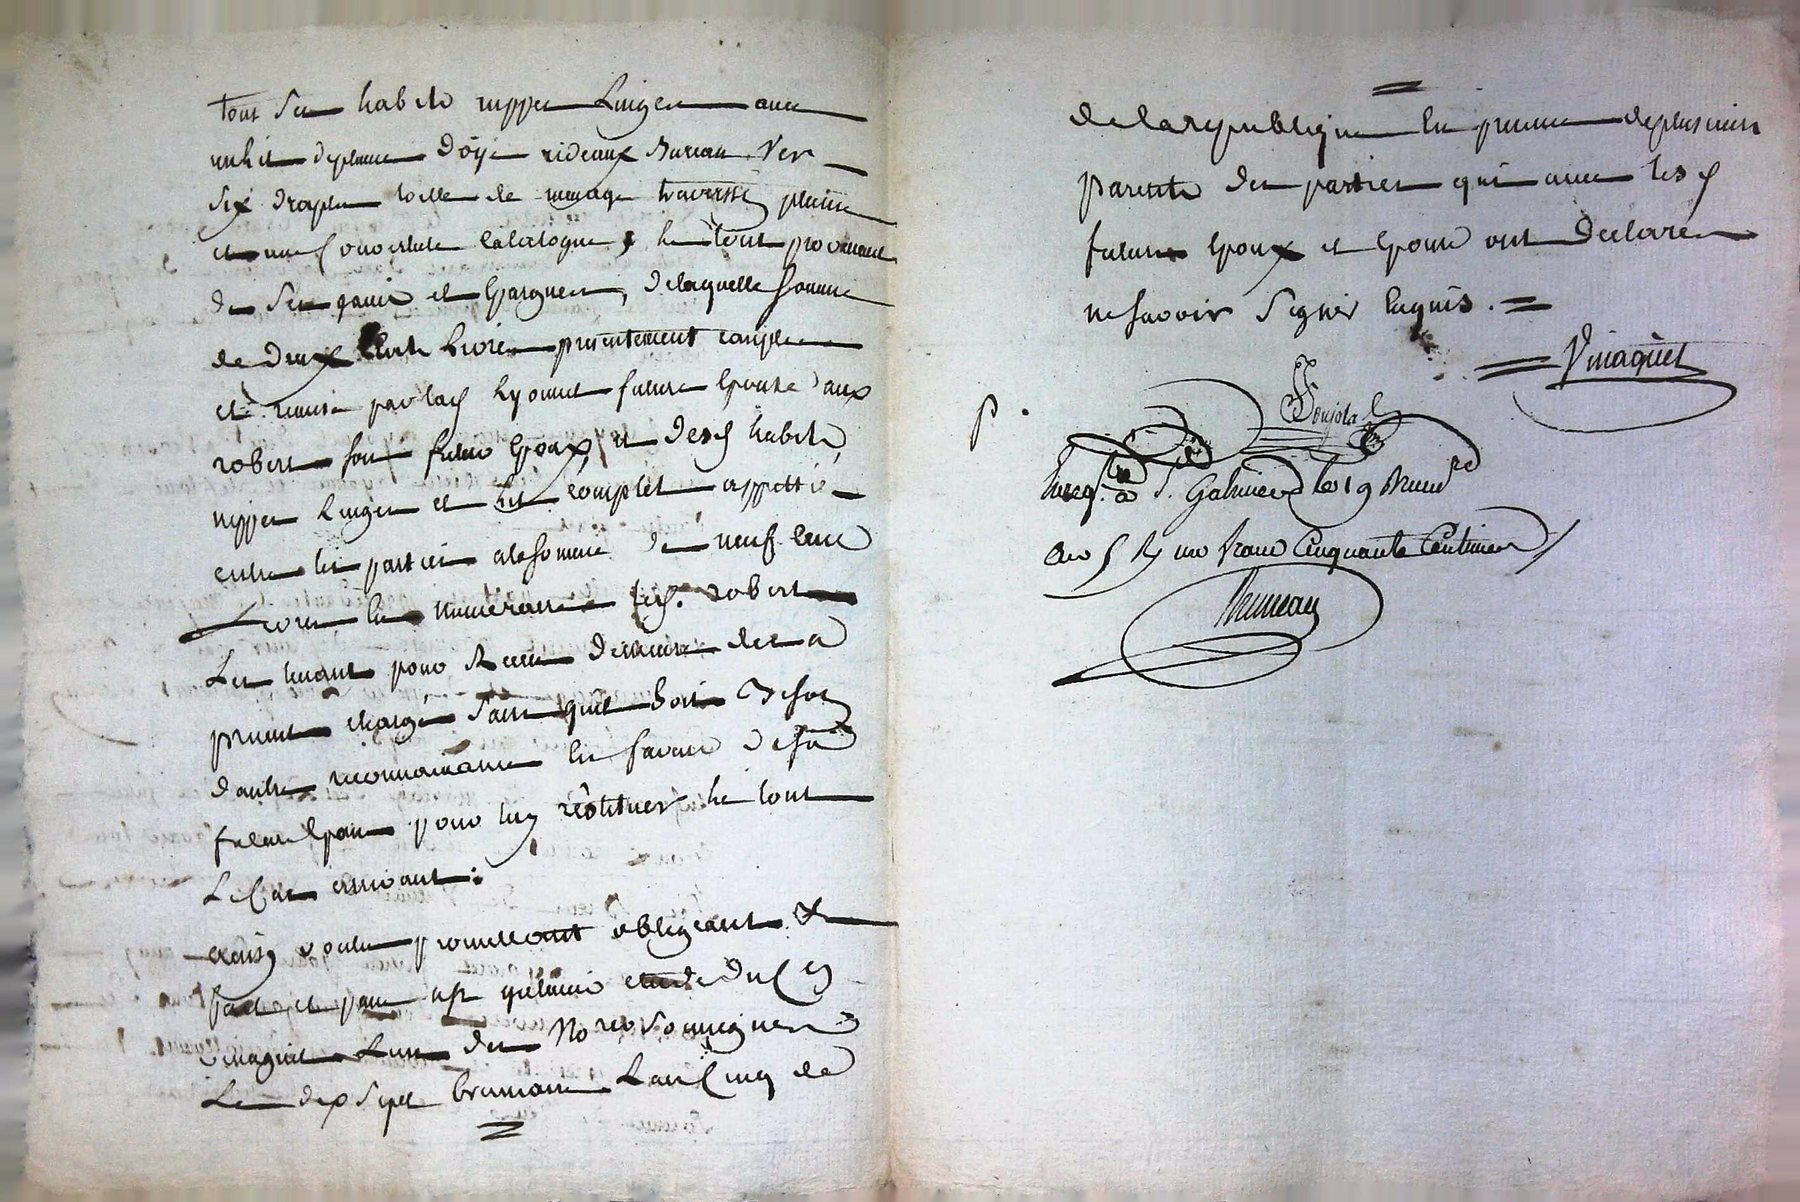 tout ses habits nippes Linges avec
un lit de plume d'oye rideaux Bureau Ver
six draps toille de menage traversin
et une couverture catalogne, le tout provenant
de ses gains et Epargnes, de laquelle somme
de deux cents livres presentement comptée
et remise par lad Lyonnet future Epouse aud
robert son futur Epoux, et desd habits,
nippes linges et lit complet appretié
entre les parties a la somme de neuf cens
livres en numeraire led. robert
Les tenant pour Reçu demeure des a
present chargé sans quil soit besoin
dautre reconnaissance en faveur de sad
future Epouse pour luy réstituer le tout
Le Cas arrivant:
et ainsy voulu promettant obligeant &
fait et passé a St Galmier etude du Cn
vinaguet Lun des Nores soussignes
Le dix sept brumaire Lan Cinq de
de la republique En presence de plusieurs
parents des parties qui avec lesd
futurs Epoux et Epouse ont declarés
ne savoir signer Enquis.
Vinaguet
P.
Soujola
Enreg. à St. Galmier le 19 Brumre
an 5 R un franc Cinquante Centimes
Bruneau